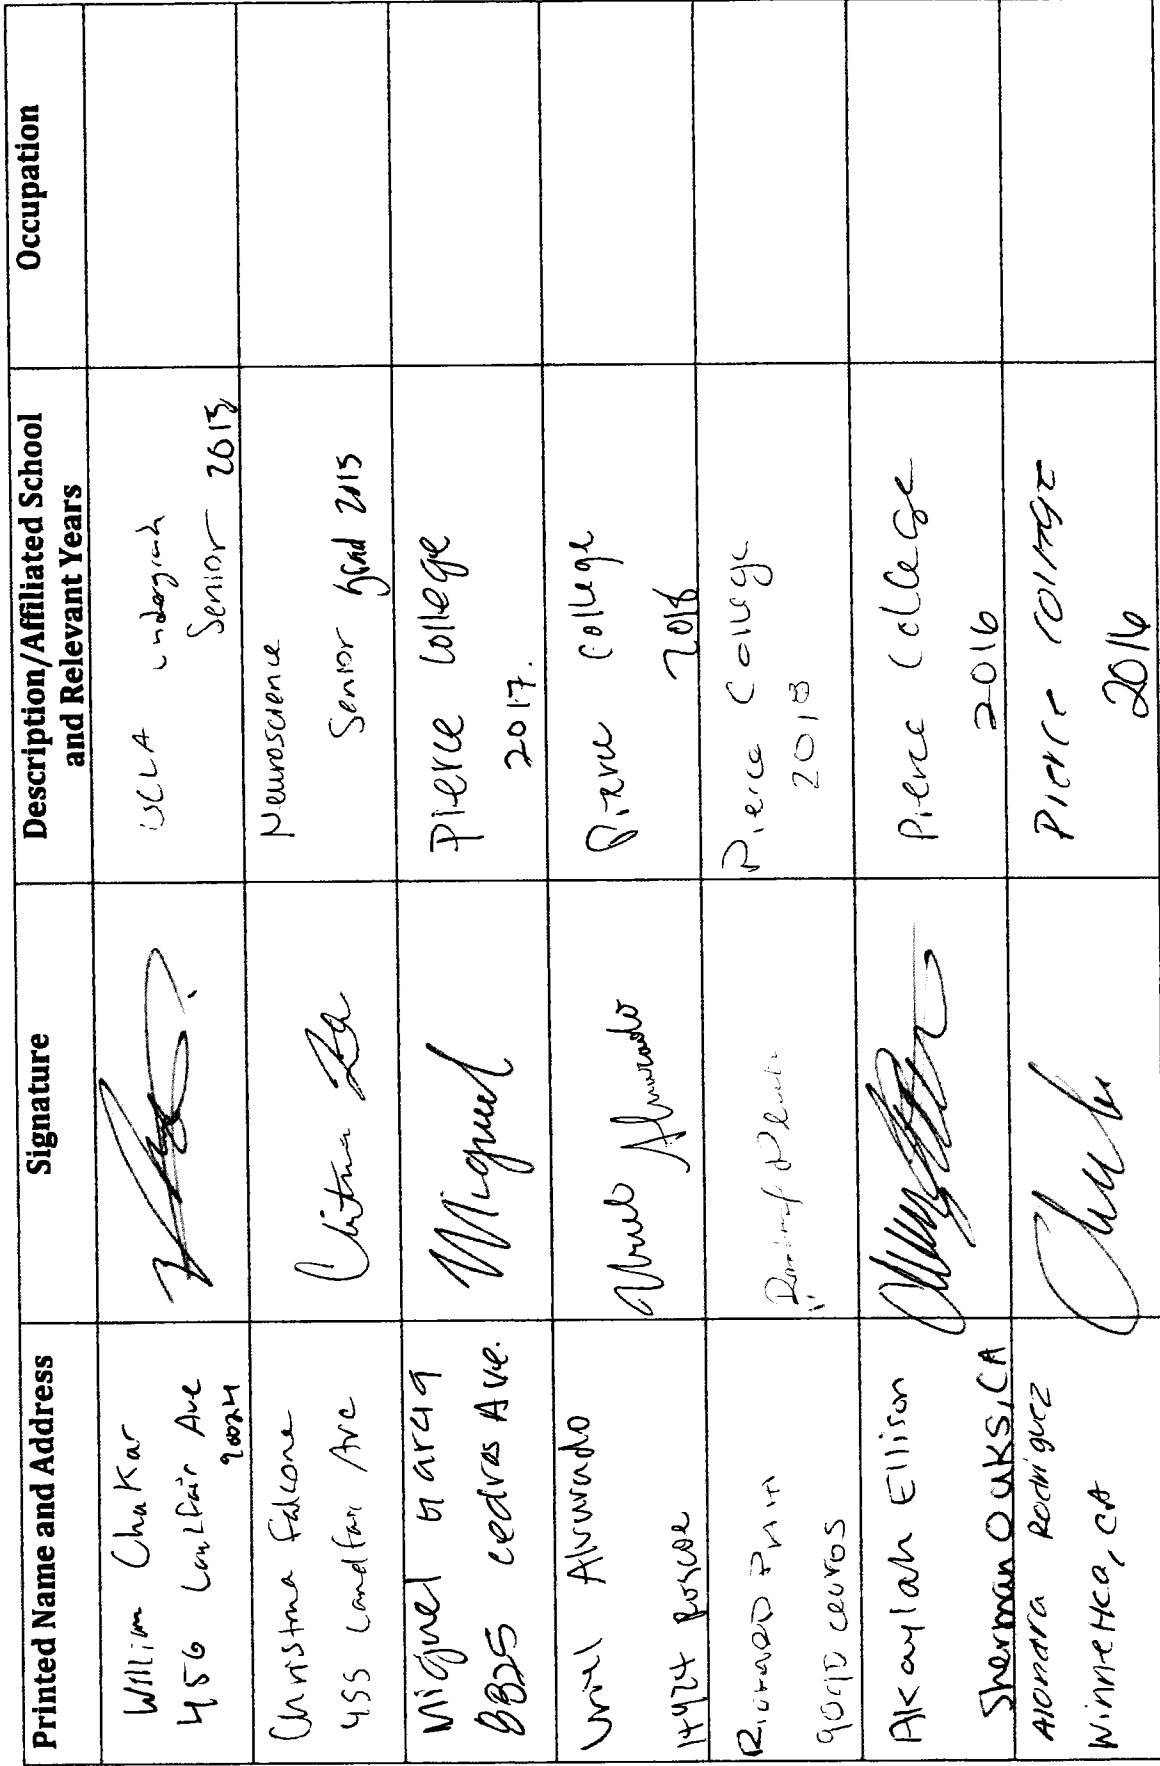 Printed Name and Address
Signature
Description/Affiliated School
and Relevant Years
Occupation
William Chakar
456 Landfair Ave
90024
UCLA undergrad
Senior 2015
Christina Falcone
455 Landfair Ave
Neuroscience
Senior grad 2015
Miguel Garcia
8825 Cedros Ave.
Miguel
Pierce College
2017.
Uriel Alvarado
14924 Roscoe
Alvarado
Pierce College
2018
9090 Cedros
Pierce College
2018
Akaylah Ellison
Sherman Oaks, CA
Pierce College
2016
Rodriguez
Winnetka, CA
Pierce College
2016